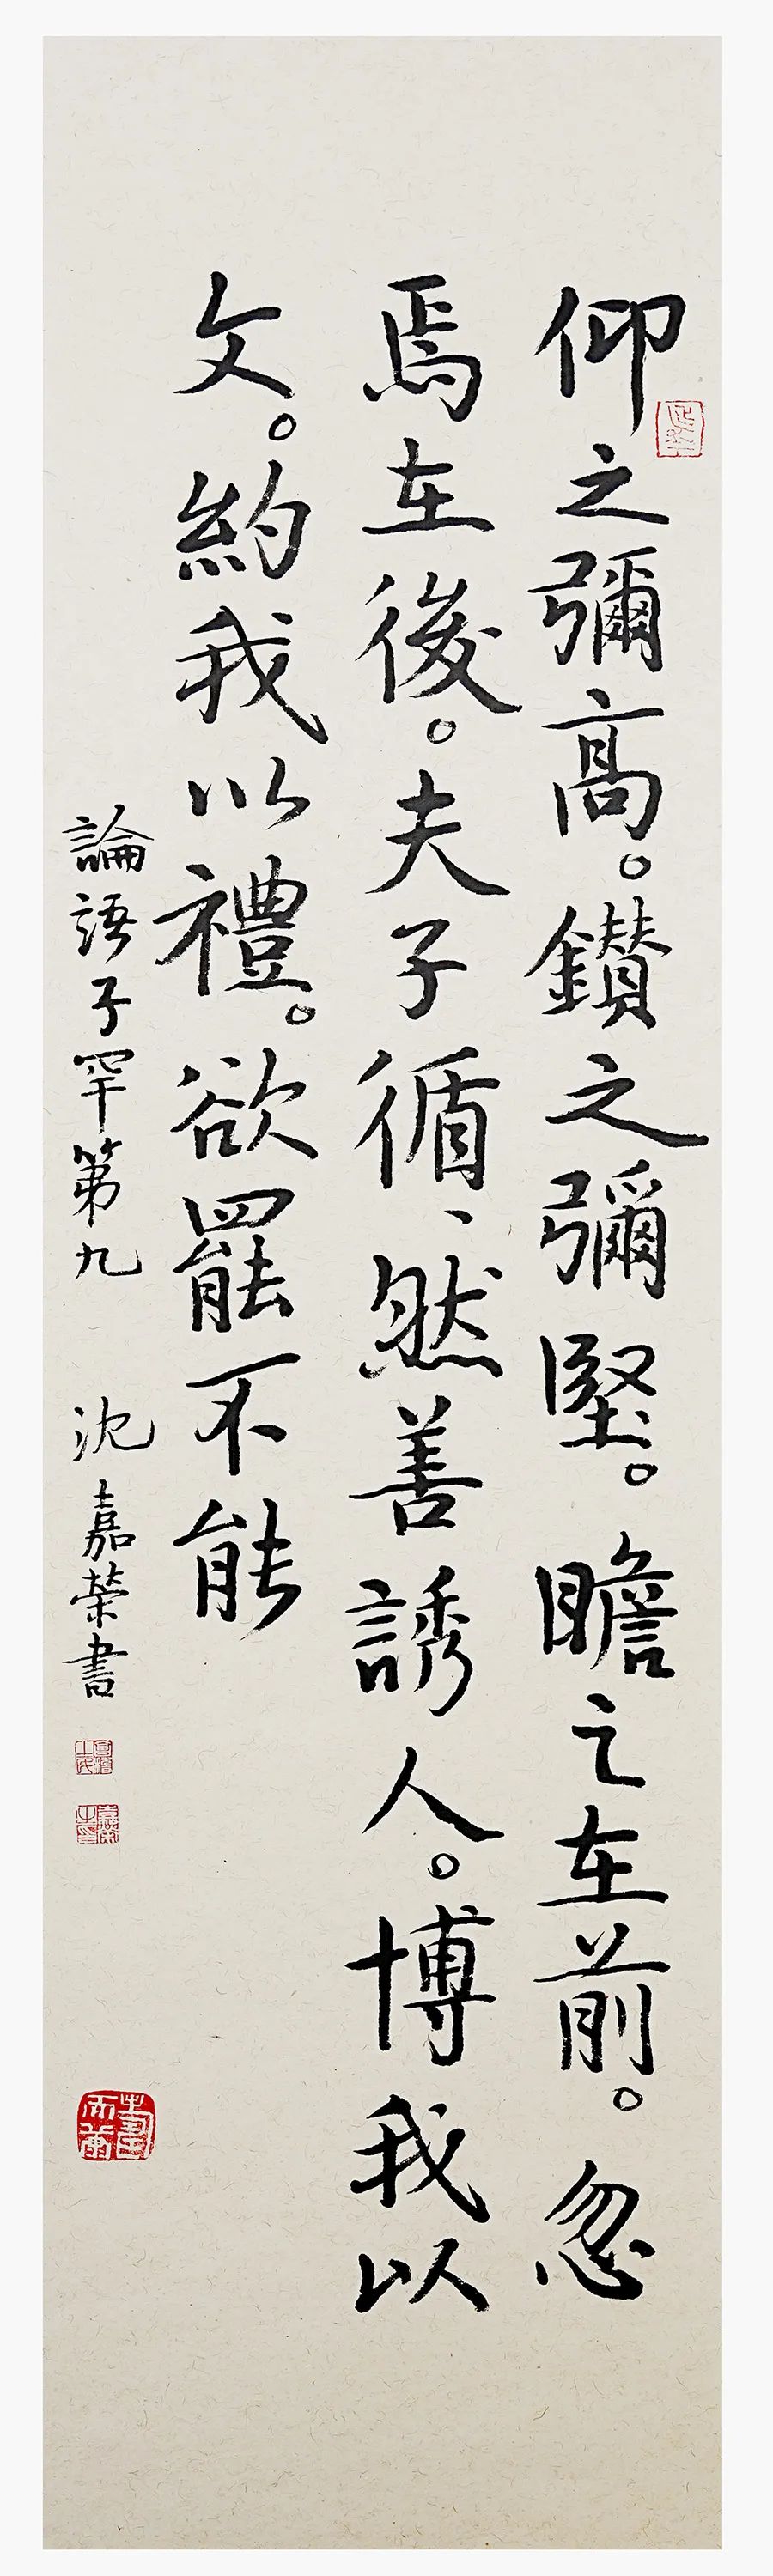 仰之彌高。鑽之彌堅。瞻之在前。忽
焉在後。夫子循、然善誘人。博我以
文。約我以禮。欲罷不能
論語子罕第九 沈嘉榮書